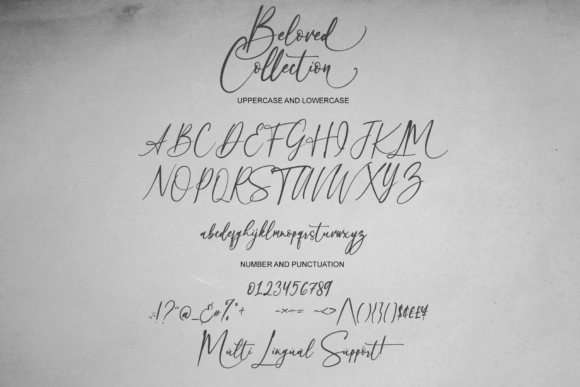 Beloved
Collection
UPPERCASE AND LOWERCASE
ABCDEFGHIJKLM
NOPQRSTUVWXYZ
abcdefghijklmnopqrstuvwxyz
NUMBER AND PUNCTUATION
0123456789
Multi Lingual Support!